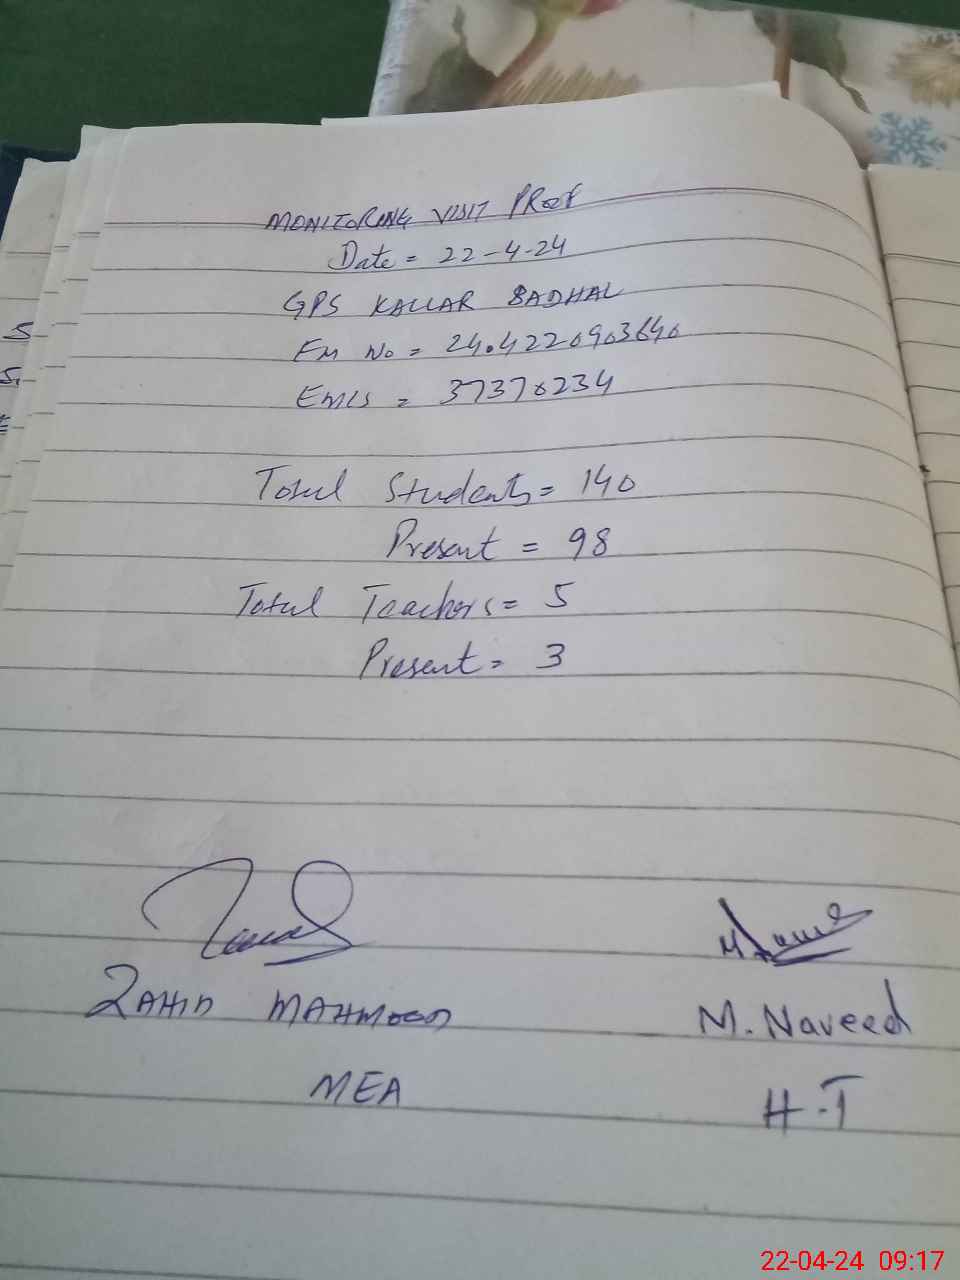 MONITORING VISIT PROOF
Date = 22-4-24
GPS KALLAR BADHAL
EM No = 24.4220903640
EMIS = 37370234
Total Students = 140
Present = 98
Total Teachers = 5
Present = 3
ZAHID MAHMOOD
M. Naveed
MEA
H.T
22-04-24 09:17